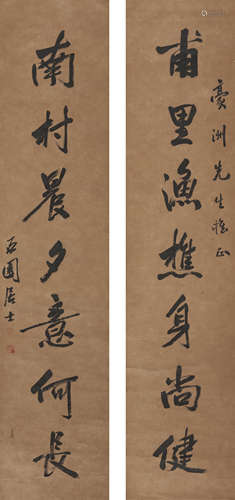 甫里漁樵身尚健
豪洲先生雅正
南村晨夕意何長
石園居士